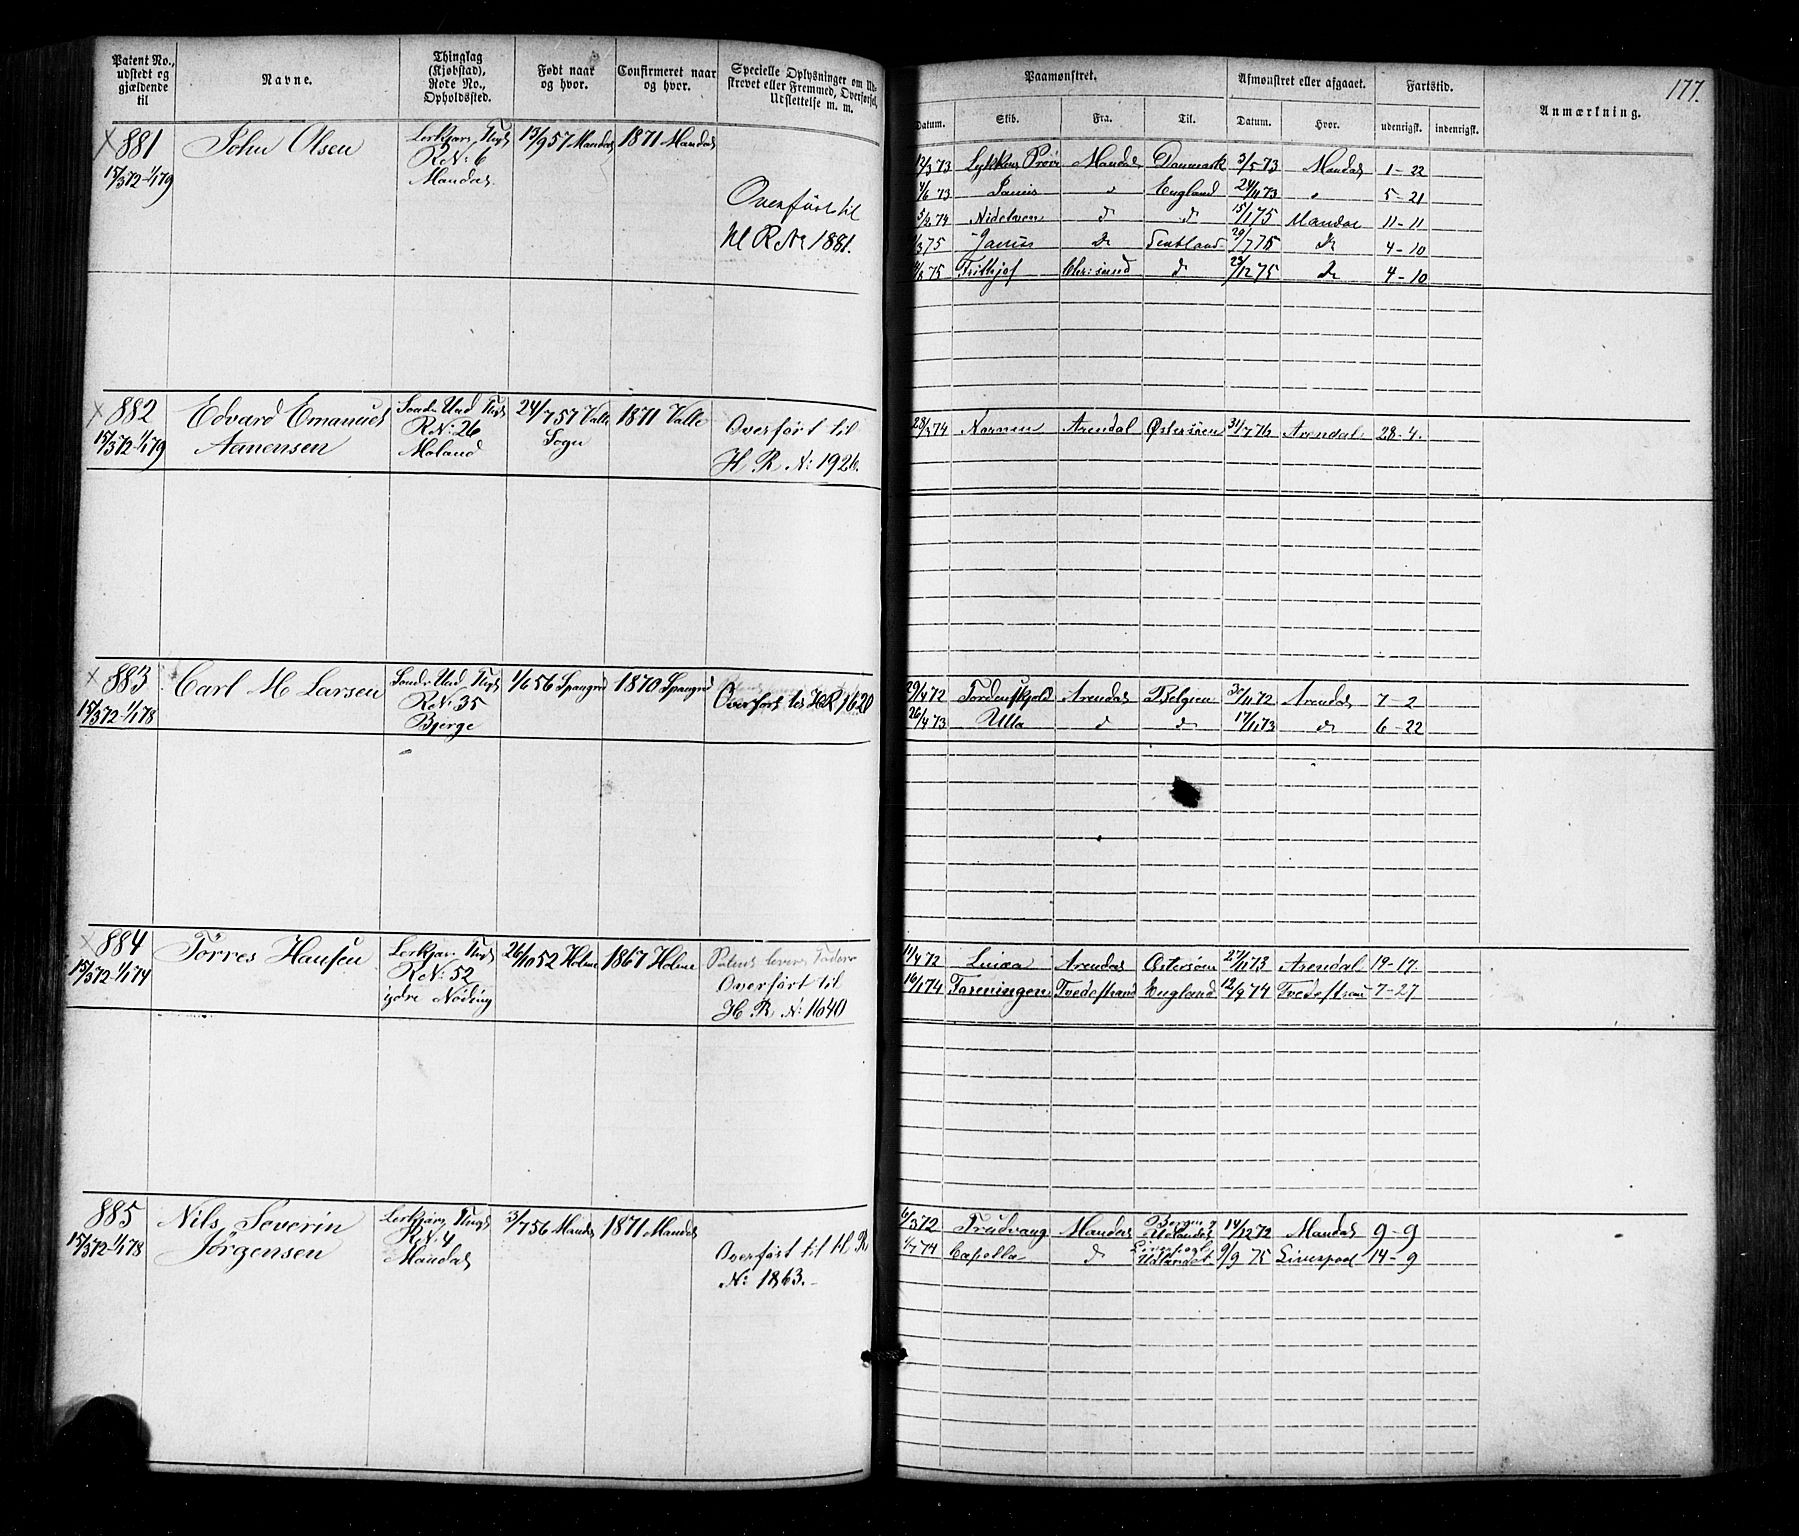 Patent No., udstedt og gjældende til
Navne.
Thinglag (Kjøbstad), Rode No., Opholdssted.
Født naar og hvor.
Confirmeret naar og hvor.
Specielle Oplysninger om Udskrevet eller Fremmed, Overførsel, Udslettelse m. m.
Paamønstret.
Afmønstret eller afgaaet.
Fartstid.
Anmærkning.
177.
Datum.
Skib.
Fra.
Til.
Datum.
Hvor.
udenrigsk.
indenrigsk.
881
15/3 72 - 1/1 79
John Olsen
R N: 6
Mandal
13/9 57 Mandal
1871 Mandal
Overført til
Hl R No 1881.
12/3 73 Lykkens Prøve Mandal Danmark 3/5 73 Mandal 1 - 22
73 Janus England 24/11 73 5 - 21
5/2 74 Nidelven d d 15/1 75 Mandal 11 - 11
75 Janus d 29/7 75 d 4 - 10
75 Frithjof Chr:sund d 23/12 75 d 4 - 10
882
15/3 72 - 1/1 79
Edvard Emanuel
Aanensen
R N: 26
Moland
24/7 57 Valle
Sogn
1871 Valle
Overført til
H R N: 1926.
28/3 74 Nornen Arendal Østersøen 31/7 76 Arendal 28 - 4.
883
15/3 72 - 1/1 78
Carl M Larsen
R N: 35
Bjerge
1/6 56 Spangrd
1870 Spangrd
Overført til H R 1620
29/4 72 Tordenskjold Arendal Belgien 30/11 72 Arendal 7 - 2
26/4 73 Ulla d d 17/11 73 d 6 - 22
884
15/3 72 - 1/1 74
Tørres Hansen
R N: 52
ydre Nöding
26/10 52 Holme
1867 Holme
Overført til
H R N: 1640
11/4 72 Arendal Østersøen 27/11 73 Arendal 19 - 17.
16/1 74 Foreningen Tvedestrand England 12/9 74 Tvedestrand 7 - 27
885
15/3 72 - 1/1 78
Nils Severin
Jörgensen
R N: 4
Mandal
3/7 56 Mandal
1871 Mandal
Overført til Hl R
N: 1863.
6/3 72 Trudvang Mandal Bergen og Udlandet 14/12 72 Mandal 9 - 9
1/7 74 Capella d Udlandet 9/9 75 Liverpool 14 - 9